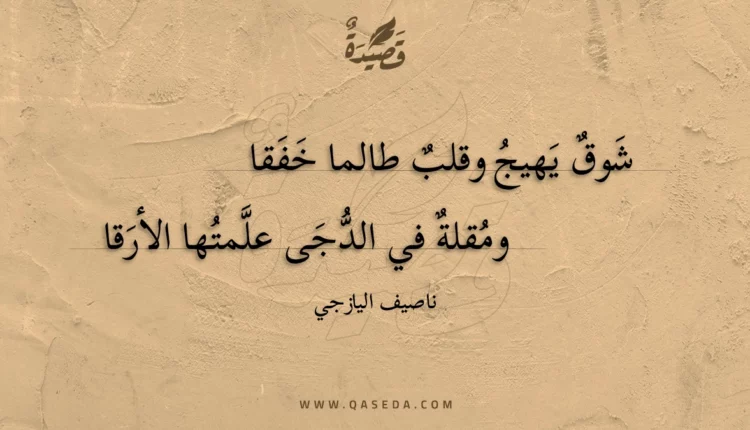 قَصِيْدَةٌ
شَوقٌ يَهيجُ وقلبٌ طالما خَفَقا
ومُقلةٌ في الدُّجَى علَّمتُها الأرَقا
ناصيف اليازجي
WWW.QASEDA.COM